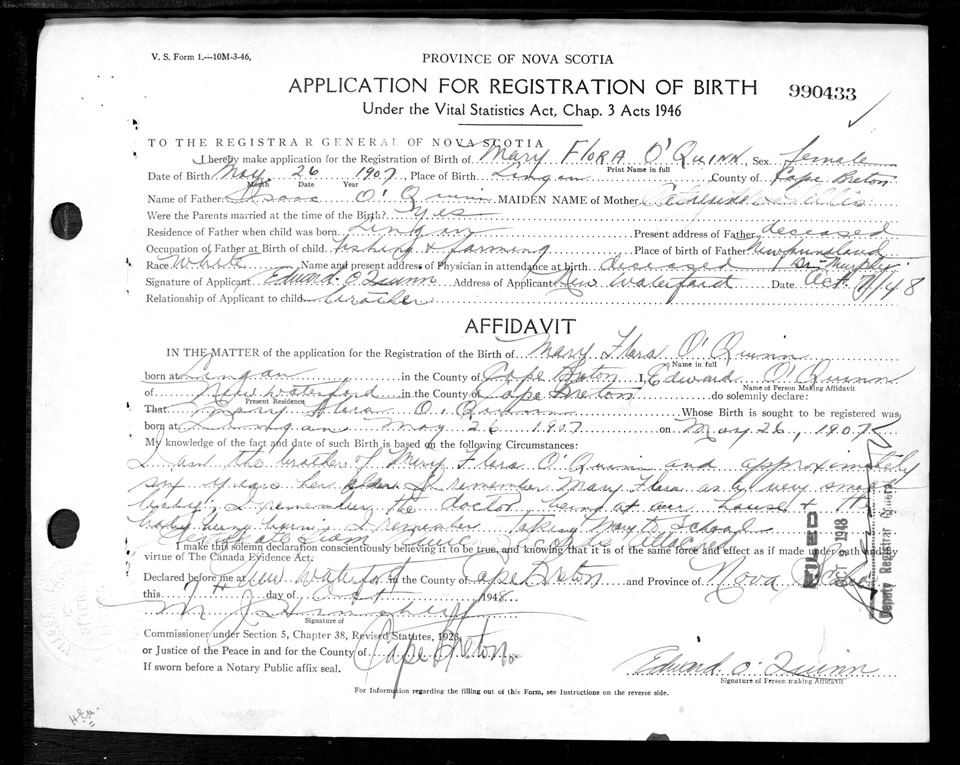 V. S. Form 1.—10M-3-46.
PROVINCE OF NOVA SCOTIA
APPLICATION FOR REGISTRATION OF BIRTH
990433
Under the Vital Statistics Act, Chap. 3 Acts 1946
TO THE REGISTRAR GENERAL OF NOVA SCOTIA
I hereby make application for the Registration of Birth of Mary Flora O'Quinn, Sex female
Print Name in full
Date of Birth May 26 1907, Place of Birth Lingan County of Cape Breton
Month Date Year
Name of Father Isaac O'Quinn MAIDEN NAME of Mother
Were the Parents married at the time of the Birth? Yes
Residence of Father when child was born Lingan Present address of Father deceased
Occupation of Father at Birth of child fishing & farming Place of birth of Father Newfoundland
Race White Name and present address of Physician in attendance at birth deceased Dr. Murphy
Signature of Applicant Edward O'Quinn Address of Applicant New Waterford Date Oct 7/48
Relationship of Applicant to child brother
AFFIDAVIT
IN THE MATTER of the application for the Registration of the Birth of Mary Flora O'Quinn
Name in full
born at Lingan in the County of Cape Breton I, Edward O'Quinn
Name of Person Making Affidavit
of New Waterford in the County of Cape Breton do solemnly declare:
Present Residence
That Mary Flora O'Quinn Whose Birth is sought to be registered was
born at Lingan May 26 1907 on May 26, 1907
My knowledge of the fact and date of such Birth is based on the following Circumstances:
I am the brother of Mary Flora O'Quinn and approximately
six years her elder. I remember Mary Flora as a very small
baby; I remember the doctor being at our house & the
baby being born; I remember taking Mary to School
Certificate from attached
I make this solemn declaration conscientiously believing it to be true, and knowing that it is of the same force and effect as if made under oath and by
virtue of The Canada Evidence Act.
Declared before me at New Waterford in the County of Cape Breton and Province of Nova Scotia
this 7th day of Oct 1948
M J
Signature of
Commissioner under Section 5, Chapter 38, Revised Statutes, 1923,
or Justice of the Peace in and for the County of Cape Breton
If sworn before a Notary Public affix seal.
Edward O'Quinn
Signature of Person making Affidavit
For Information regarding the filling out of this Form, see Instructions on the reverse side.
FILED
OCT 9 1948
Deputy Registrar General